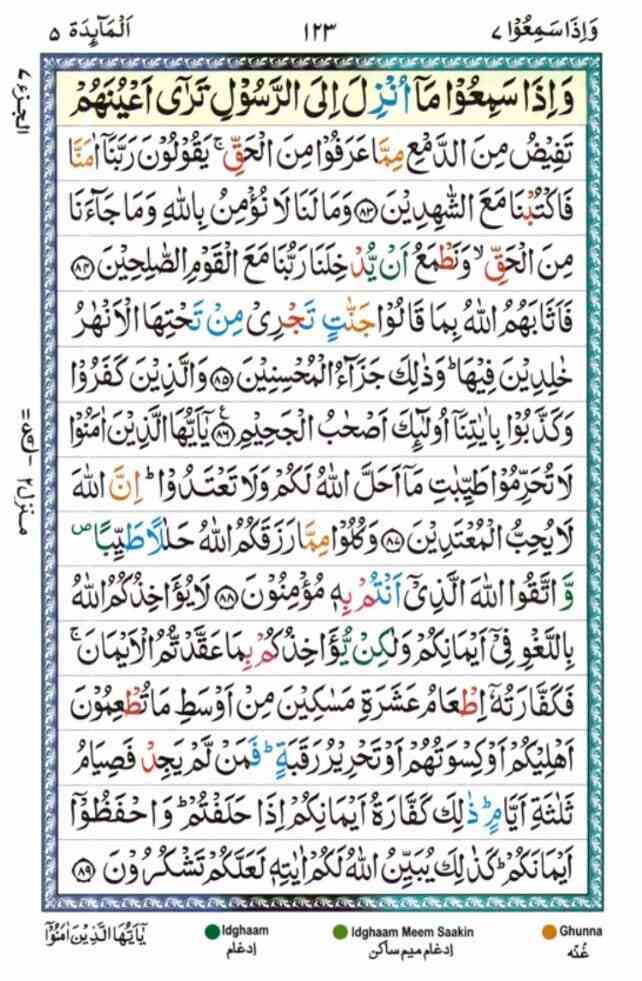 وَاِذَا سَمِعُوْا ٧
١٢٣
اَلْمَآئِدَة ٥
الجزء ٧
وَاِذَا سَمِعُوْا مَاۤ اُنْزِلَ اِلَى الرَّسُوْلِ تَرٰۤى اَعْيُنَهُمْ
تَفِيْضُ مِنَ الدَّمْعِ مِمَّا عَرَفُوْا مِنَ الْحَقِّ ۚ يَقُوْلُوْنَ رَبَّنَاۤ اٰمَنَّا
فَاكْتُبْنَا مَعَ الشّٰهِدِيْنَ ﴿٨٣﴾ وَمَا لَنَا لَا نُؤْمِنُ بِاللّٰهِ وَمَا جَآءَنَا
مِنَ الْحَقِّ ۙ وَنَطْمَعُ اَنْ يُّدْخِلَنَا رَبُّنَا مَعَ الْقَوْمِ الصّٰلِحِيْنَ ﴿٨٤﴾
فَاَثَابَهُمُ اللّٰهُ بِمَا قَالُوْا جَنّٰتٍ تَجْرِيْ مِنْ تَحْتِهَا الْاَنْهٰرُ
خٰلِدِيْنَ فِيْهَا ؕ وَذٰلِكَ جَزَآءُ الْمُحْسِنِيْنَ ﴿٨٥﴾ وَالَّذِيْنَ كَفَرُوْا
وَكَذَّبُوْا بِاٰيٰتِنَاۤ اُولٰٓئِكَ اَصْحٰبُ الْجَحِيْمِ ﴿٨٦﴾ ع يٰۤاَيُّهَا الَّذِيْنَ اٰمَنُوْا
لَا تُحَرِّمُوْا طَيِّبٰتِ مَاۤ اَحَلَّ اللّٰهُ لَكُمْ وَلَا تَعْتَدُوْا ؕ اِنَّ اللّٰهَ
لَا يُحِبُّ الْمُعْتَدِيْنَ ﴿٨٧﴾ وَكُلُوْا مِمَّا رَزَقَكُمُ اللّٰهُ حَلٰلًا طَيِّبًا ۪
وَّاتَّقُوا اللّٰهَ الَّذِيْۤ اَنْتُمْ بِهٖ مُؤْمِنُوْنَ ﴿٨٨﴾ لَا يُؤَاخِذُكُمُ اللّٰهُ
بِاللَّغْوِ فِيْۤ اَيْمَانِكُمْ وَلٰكِنْ يُّؤَاخِذُكُمْ بِمَا عَقَّدْتُّمُ الْاَيْمَانَ ۚ
فَكَفَّارَتُهٗۤ اِطْعَامُ عَشَرَةِ مَسٰكِيْنَ مِنْ اَوْسَطِ مَا تُطْعِمُوْنَ
اَهْلِيْكُمْ اَوْ كِسْوَتُهُمْ اَوْ تَحْرِيْرُ رَقَبَةٍ ؕ فَمَنْ لَّمْ يَجِدْ فَصِيَامُ
ثَلٰثَةِ اَيَّامٍ ؕ ذٰلِكَ كَفَّارَةُ اَيْمَانِكُمْ اِذَا حَلَفْتُمْ ؕ وَاحْفَظُوْۤا
اَيْمَانَكُمْ ؕ كَذٰلِكَ يُبَيِّنُ اللّٰهُ لَكُمْ اٰيٰتِهٖ لَعَلَّكُمْ تَشْكُرُوْنَ ﴿٨٩﴾
منزل ٢
يٰۤاَيُّهَا الَّذِيْنَ اٰمَنُوْۤا
Idghaam
إدغام
Idghaam Meem Saakin
إدغام ميم ساكن
Ghunna
غُنّه